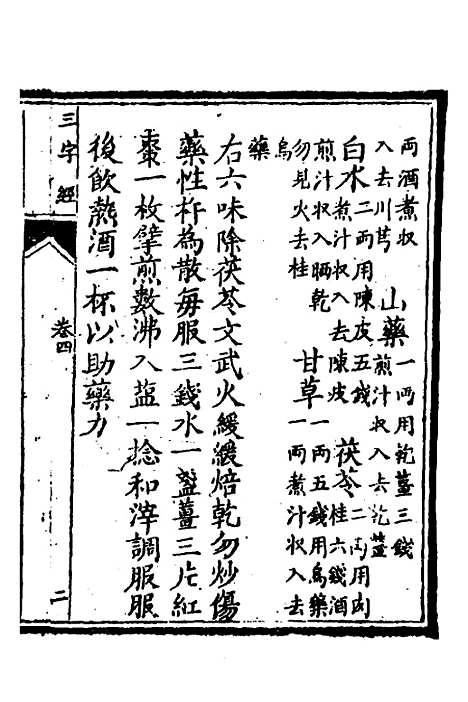 両酒煮収
入去川芎
山藥
一両用乾薑三錢
煎汁収入去乾薑
白水
二両用陳皮五錢
煮汁収入去陳皮
茯苓
二両用肉
桂六錢酒
煎汁収入晒乾
勿見火去桂
甘草
一両五錢用烏藥
一両煮汁収入去
烏
藥
右六味除茯苓文武火緩緩焙乾勿炒傷
藥性杵為散每服三錢水一盞薑三片紅
棗一枚擘煎數沸入塩一捻和滓調服服
後飲熱酒一杯以助藥力
三字經
卷四
二